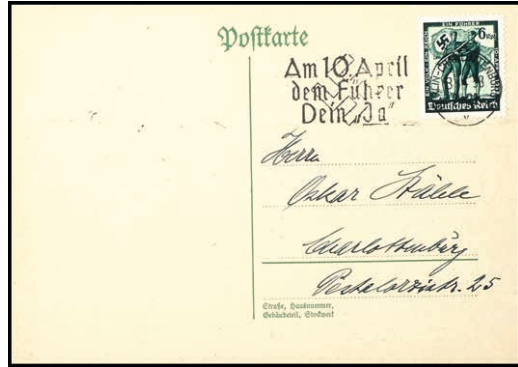 Postkarte
Am 10. April
dem Führer
Dein „Ja“
6
Deutsches Reich
Herrn
Oskar
Charlottenburg
Pestalozzistr. 25
Straße, Hausnummer,
Gebäudeteil, Stockwerk